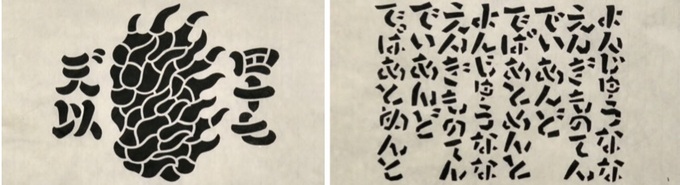 四十七
デ以
よんじゅうなな
えんぎものてん
でいあんど
でぱあとめんと
よんじゅうなな
えんぎものてん
でいあんど
でぱあとめんと